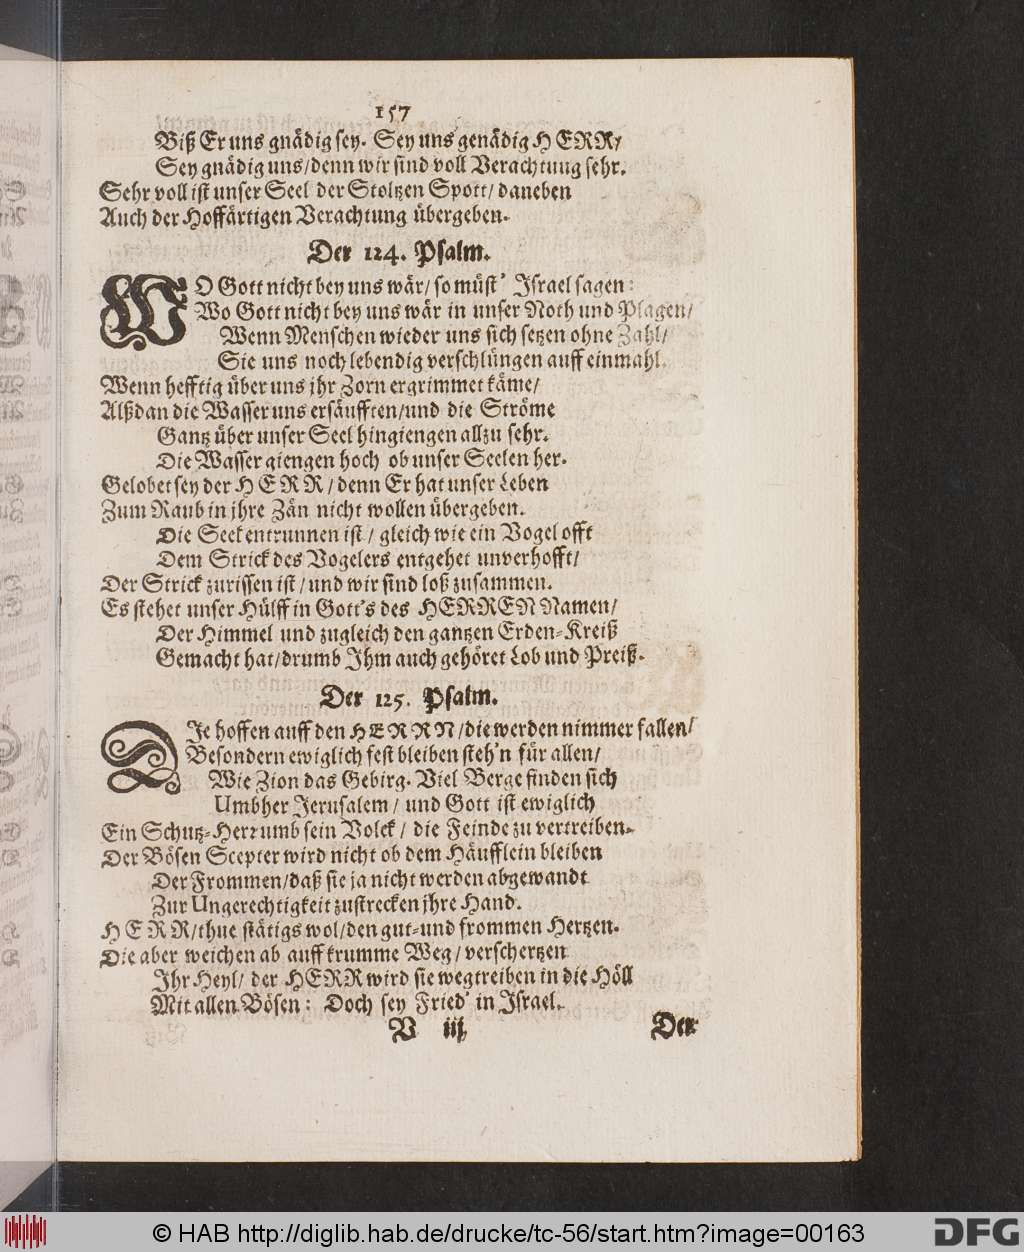 157
Biß Er uns gnädig sey. Sey uns genädig HERR/
Sey gnädig uns/denn wir sind voll Verachtung sehr.
Sehr voll ist unser Seel der Stoltzen Spott/ daneben
Auch der Hoffärtigen Verachtung übergeben.
Der 124. Psalm.
WO Gott nicht bey uns wär/ so müst' Israel sagen:
Wo Gott nicht bey uns wär in unser Noth und Plagen/
Wenn Menschen wieder uns sich setzen ohne Zahl/
Sie uns noch lebendig verschlüngen auff einmahl.
Wenn hefftig über uns jhr Zorn ergrimmet käme/
Alßdan die Wasser uns ersäufften/und die Ströme
Gantz über unser Seel hingiengen allzu sehr.
Die Wasser giengen hoch ob unser Seelen her.
Gelobet sey der HERR/denn Er hat unser Leben
Zum Raub in jhre Zän nicht wollen übergeben.
Die Seel entrunnen ist/ gleich wie ein Vogel offt
Dem Strick des Vogelers entgehet unverhofft/
Der Strick zurissen ist/und wir sind loß zusammen.
Es stehet unser Hülff in Gott's des HERREN Namen/
Der Himmel und zugleich den gantzen Erden-Kreiß
Gemacht hat/drumb Ihm auch gehöret Lob und Preiß.
Der 125. Psalm.
DIe hoffen auff den HERRN/die werden nimmer fallen/
Besondern ewiglich fest bleiben steh'n für allen/
Wie Zion das Gebirg. Viel Berge finden sich
Umbher Jerusalem/ und Gott ist ewiglich
Ein Schutz-Herr umb sein Volck/ die Feinde zu vertreiben.
Der Bösen Scepter wird nicht ob dem Häufflein bleiben
Der Frommen/daß sie ja nicht werden abgewandt
Zur Ungerechtigkeit zustrecken jhre Hand.
HERR/thue stätigs wol/den gut-und frommen Hertzen.
Die aber weichen ab auff krumme Weg/ verschertzen
Ihr Heyl/ der HERR wird sie wegtreiben in die Höll
Mit allen Bösen: Doch sey Fried' in Israel.
V iij Der
© HAB http://diglib.hab.de/drucke/tc-56/start.htm?image=00163
DFG